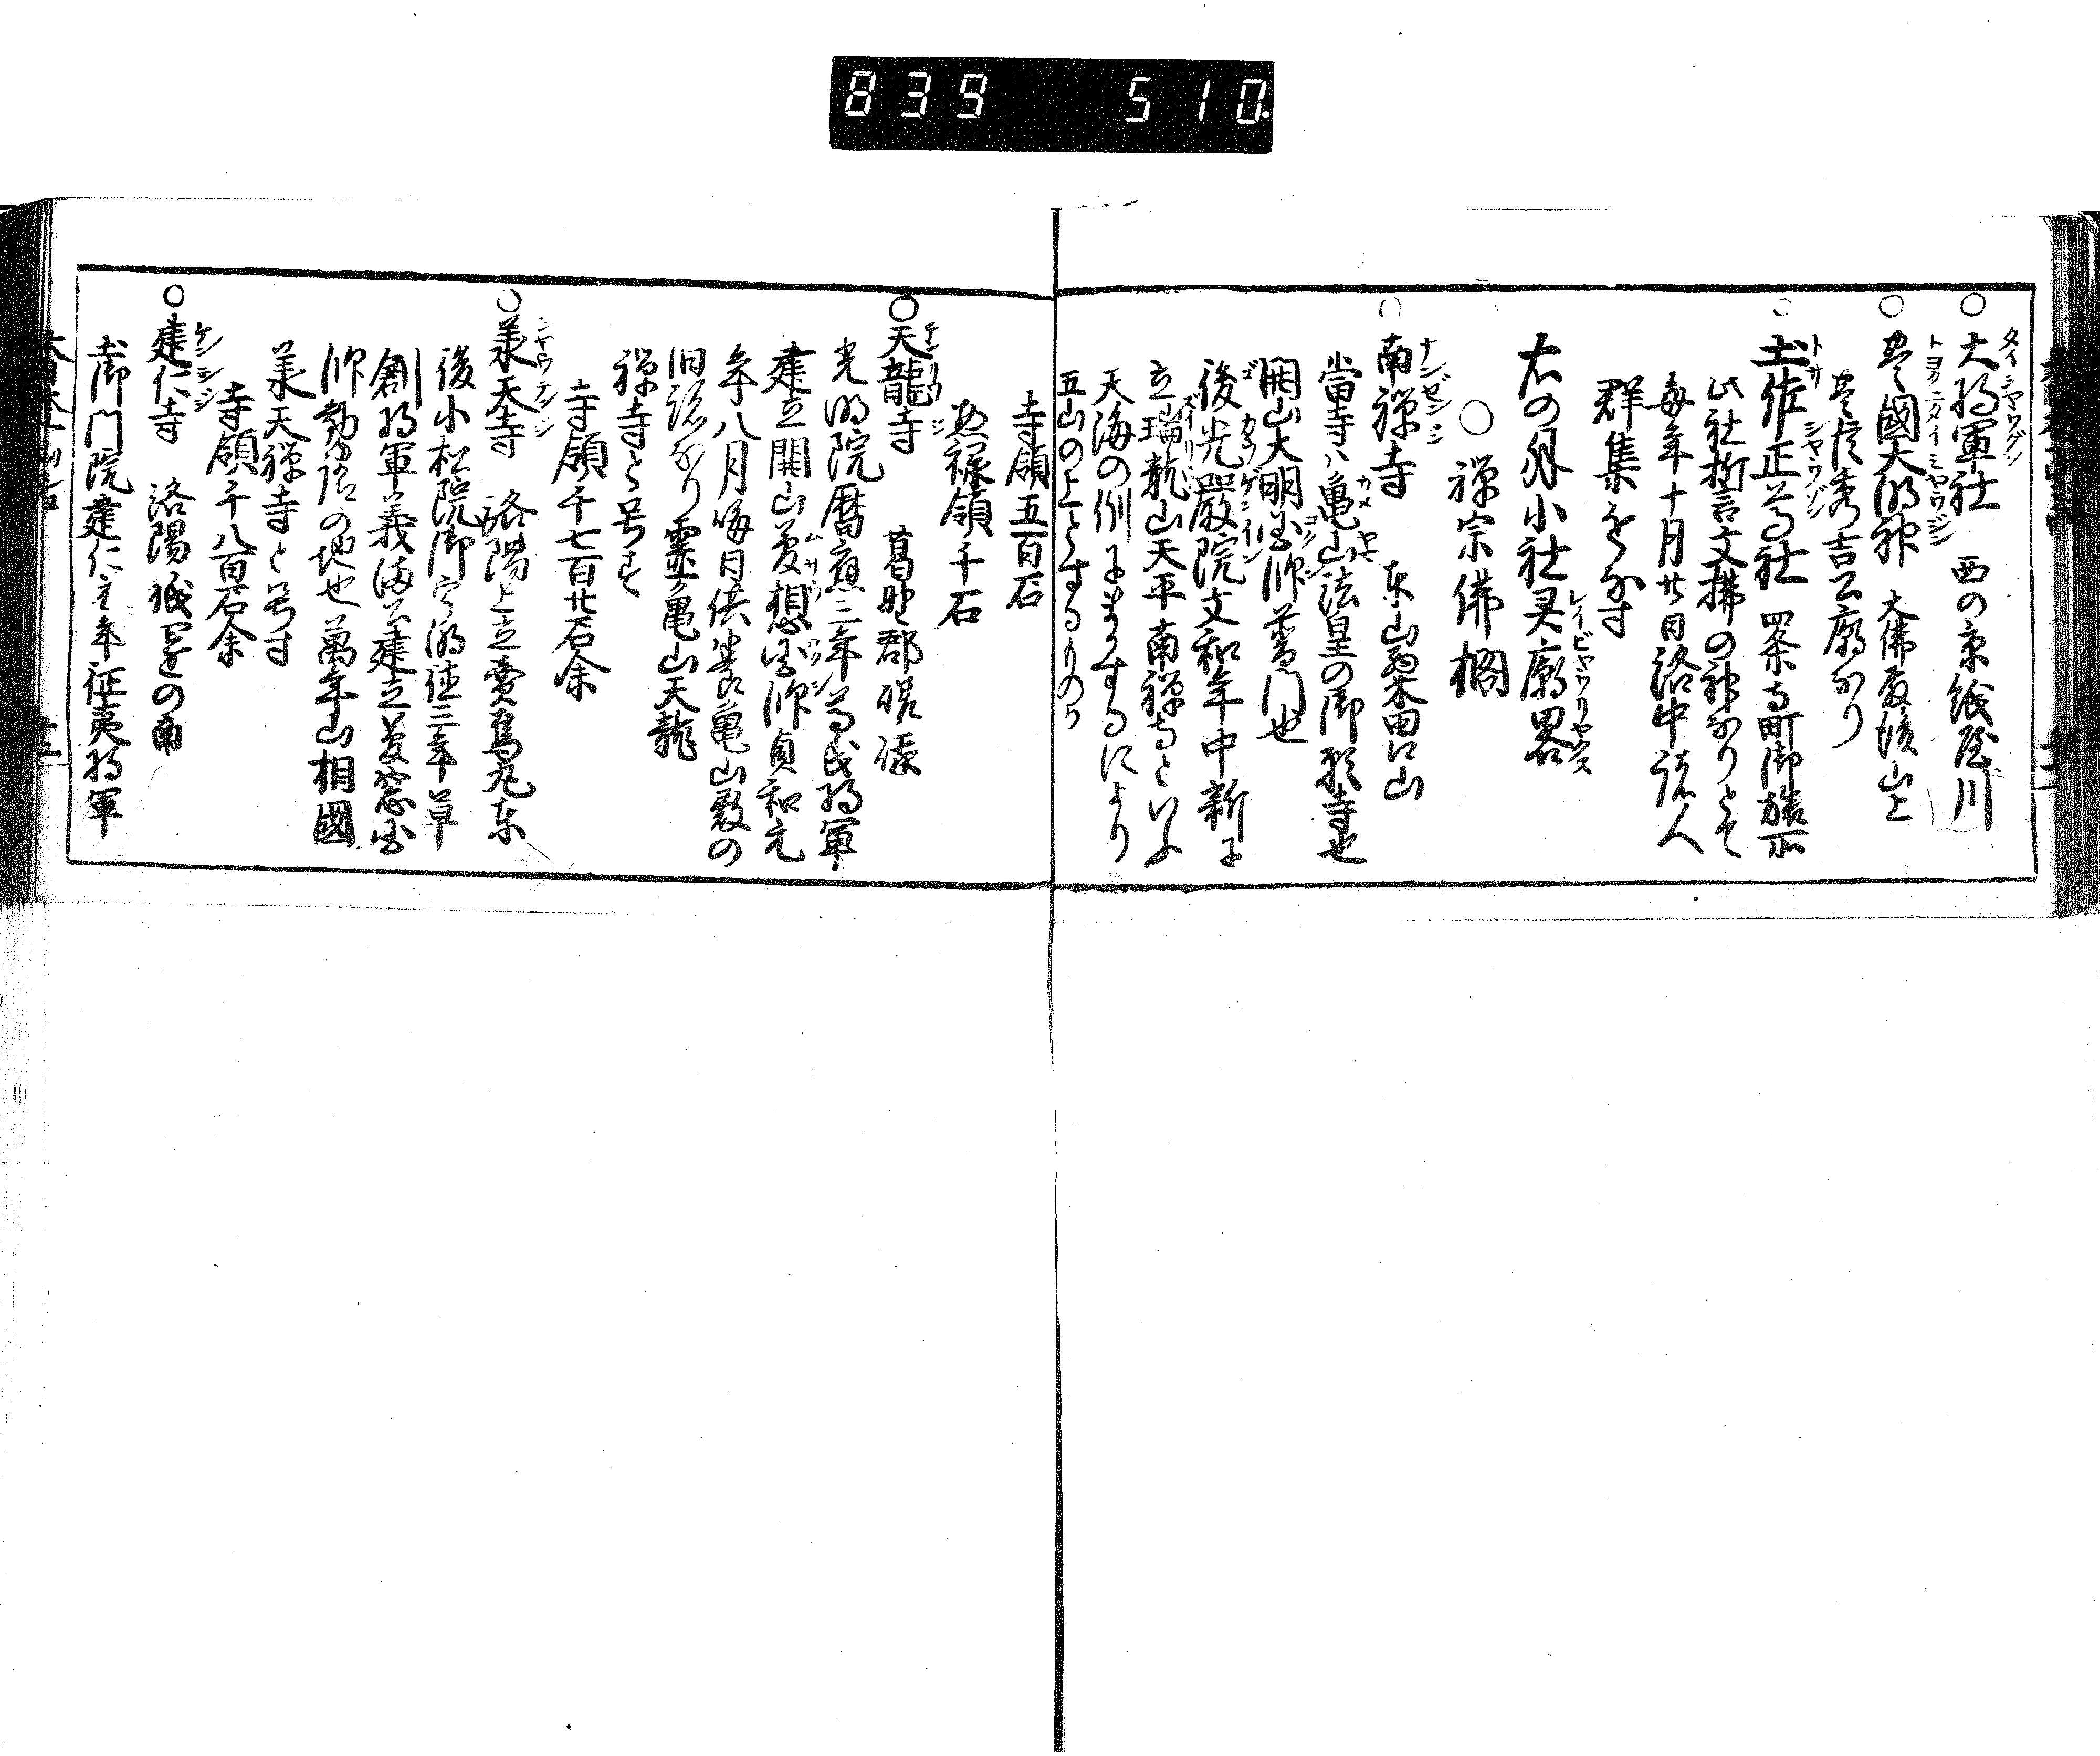 839 510
○大将軍社 西の京紙屋川
○豊國大明神 大佛殿後山上
豊臣秀吉公廟なり
○土佐正尊社 四条寺町御旅所
此社折言文拂の神なりとて
毎年十月廿日洛中諸人
群集をなす
右の外小社霊廟畧
○禅宗佛閣
○南禅寺 東山粟田口山
當寺ハ亀山法皇の御願寺也
開山大明国師普門也
後光嚴院文和年中新に
立瑞龍山天平南禅寺といふ
天海の例にまかするにより
五山の上とするものか
寺領五百石
無禄領千石
○天龍寺 葛野郡嵯峨
光明院暦應二年尊氏将軍
建立開山夢想国師貞和元
年八月晦日供養亀山殿の
旧跡なり霊亀山天龍
禅寺と号す
寺領千七百廿石余
○羕天寺 洛陽上立賣烏丸東
後小松院御宇明徳三年草
創将軍義満公建立夢窓国
師勧請の地也萬年山相國
羕天禅寺と号す
寺領千八百石余
○建仁寺 洛陽祇園の南
土御門院建仁二年征夷将軍